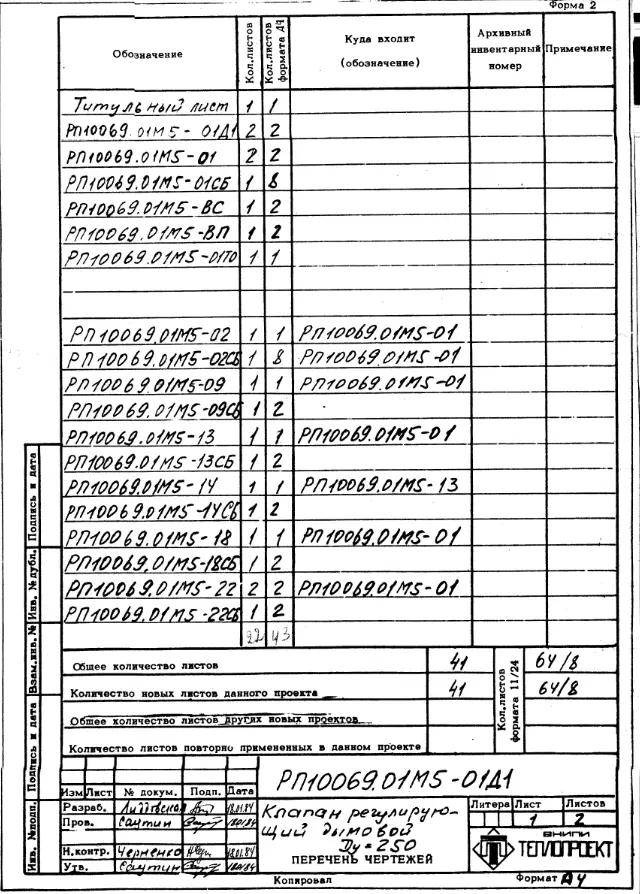 Форма 2
Обозначение Кол.листов Кол.листов формата Д4 Куда входит (обозначение) Архивный инвентарный номер Примечание
Титульный лист 1 1
РП10069.01М5-01Д1 2 2
РП10069.01М5-01 2 2
РП10069.01М5-01СБ 1 8
РП10069.01М5-ВС 1 2
РП10069.01М5-ВП 1 2
РП10069.01М5-01ТО 1 1
РП10069.01М5-02 1 1 РП10069.01М5-01
РП10069.01М5-02СБ 1 8 РП10069.01М5-01
РП10069.01М5-09 1 1 РП10069.01М5-01
РП10069.01М5-09СБ 1 2
РП10069.01М5-13 1 1 РП10069.01М5-01
РП10069.01М5-13СБ 1 2
РП10069.01М5-14 1 1 РП10069.01М5-13
РП10069.01М5-14СБ 1 2
РП10069.01М5-18 1 1 РП10069.01М5-01
РП10069.01М5-18СБ 1 2
РП10069.01М5-22 2 2 РП10069.01М5-01
РП10069.01М5-22СБ 1 2
22 43
Общее количество листов 41 Кол.листов формата 11/24 64/8
Количество новых листов данного проекта 41 64/8
Общее количество листов других новых проектов
Количество листов повторно примененных в данном проекте
Инв. №подл. Подпись и дата Взам.инв. № Инв. № дубл. Подпись и дата
РП10069.01М5-01Д1
Изм Лист № докум. Подп. Дата
Разраб. 18.01.84
Пров. Саутин
Н.контр. Черненко 18.01.84
Утв. Саутин
Клапан регулирую-
щий дымовой
Ду=250
ПЕРЕЧЕНЬ ЧЕРТЕЖЕЙ
Литера Лист Листов
1 2
ВНИПИ
ТЕПЛОПРОЕКТ
Копировал Формат Д4